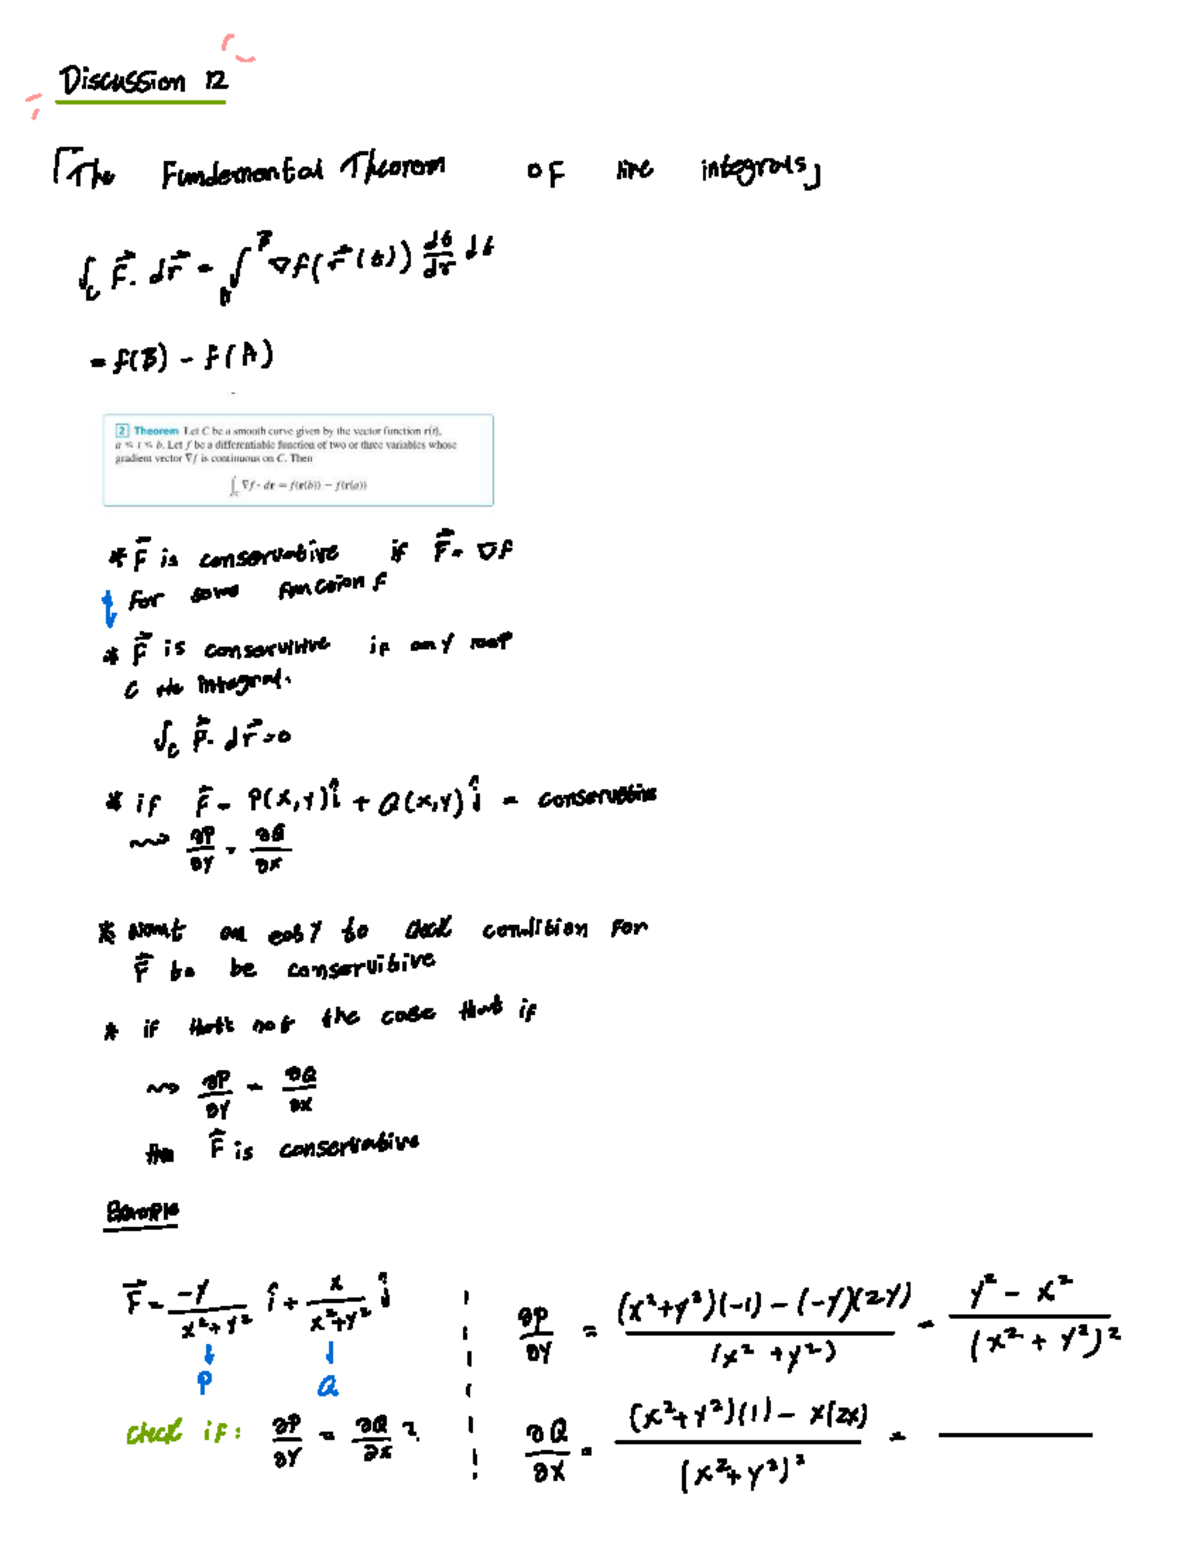 Discussion 12
「The Fundemental Theorem of line integrals」
∫_C F⃗ · dr⃗ = ∫_A^B ∇f(r⃗(t)) dt/dr dt
= f(B) - f(A)
2 Theorem Let C be a smooth curve given by the vector function r(t),
a ≤ t ≤ b. Let f be a differentiable function of two or three variables whose
gradient vector ∇f is continuous on C. Then
∫_C ∇f · dr = f(r(b)) − f(r(a))
* F⃗ is conservative if F⃗ = ∇f
for some function f
* F⃗ is conservitive if any
C the integral.
∫_C F⃗ · dr⃗ = 0
* if F⃗ = P(x,y)î + Q(x,y)ĵ = conservative
⇝ ∂P/∂y = ∂Q/∂x
* want an easy to check condition for
F⃗ to be conservitive
* if that's not the case that if
⇝ ∂P/∂y = ∂Q/∂x
the F⃗ is conservative
Example
F⃗ = -y/(x²+y²) î + x/(x²+y²) ĵ
P Q
check if: ∂P/∂y = ∂Q/∂x ?
∂P/∂y = ((x²+y²)(-1) - (-y)(2y))/(x²+y²) = (y² - x²)/(x² + y²)²
∂Q/∂x = ((x²+y²)(1) - x(2x))/(x²+y²)² =